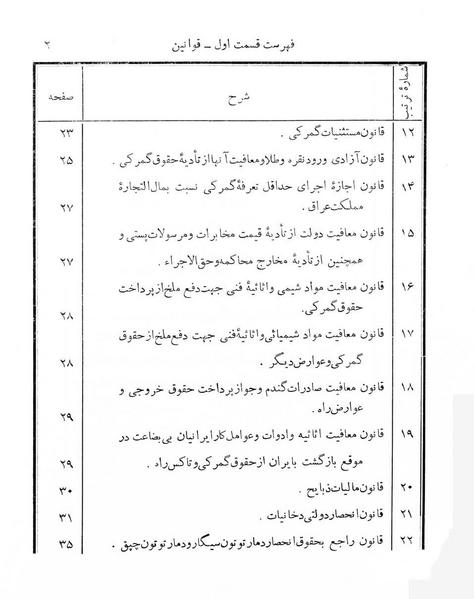 فهرست قسمت اول - قوانین ۲
شمارهٔ ترتیب شرح صفحه
۱۲ قانون مستثنیات گمرکی . ۲۳
۱۳ قانون آزادی ورود نقره وطلا و معافیت آنها از تأدیهٔ حقوق گمرکی . ۲۵
۱۴ قانون اجازهٔ اجرای حداقل تعرفهٔ گمرکی نسبت بمال التجارهٔ
مملکت عراق . ۲۷
۱۵ قانون معافیت دولت از تأدیهٔ قیمت مخابرات ومرسولات پستی و
همچنین از تأدیهٔ مخارج محاکمه وحق الاجراء . ۲۷
۱۶ قانون معافیت مواد شیمی و اثاثیهٔ فنی جهت دفع ملخ از پرداخت
حقوق گمرکی. ۲۸
۱۷ قانون معافیت مواد شیمیائی و اثاثیهٔ فنی جهت دفع ملخ از حقوق
گمرکی و عوارض دیگر . ۲۸
۱۸ قانون معافیت صادرات گندم وجو از پرداخت حقوق خروجی و
عوارض راه . ۲۹
۱۹ قانون معافیت اثاثیه وادوات وعوامل کار ایرانیان بی بضاعت در
موقع بازگشت بایران از حقوق گمرکی و تاکس راه . ۲۹
۲۰ قانون مالیات ذبایح . ۳۰
۲۱ قانون انحصار دولتی دخانیات . ۳۱
۲۲ قانون راجع بحقوق انحصار دمار توتون سیگار ودمار توتون چپق . ۳۵